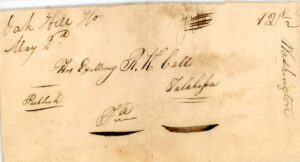 Oak Hill Mo
May 2d
12½
His Excellency R. K. Call
Talahassa
Fa
Washington